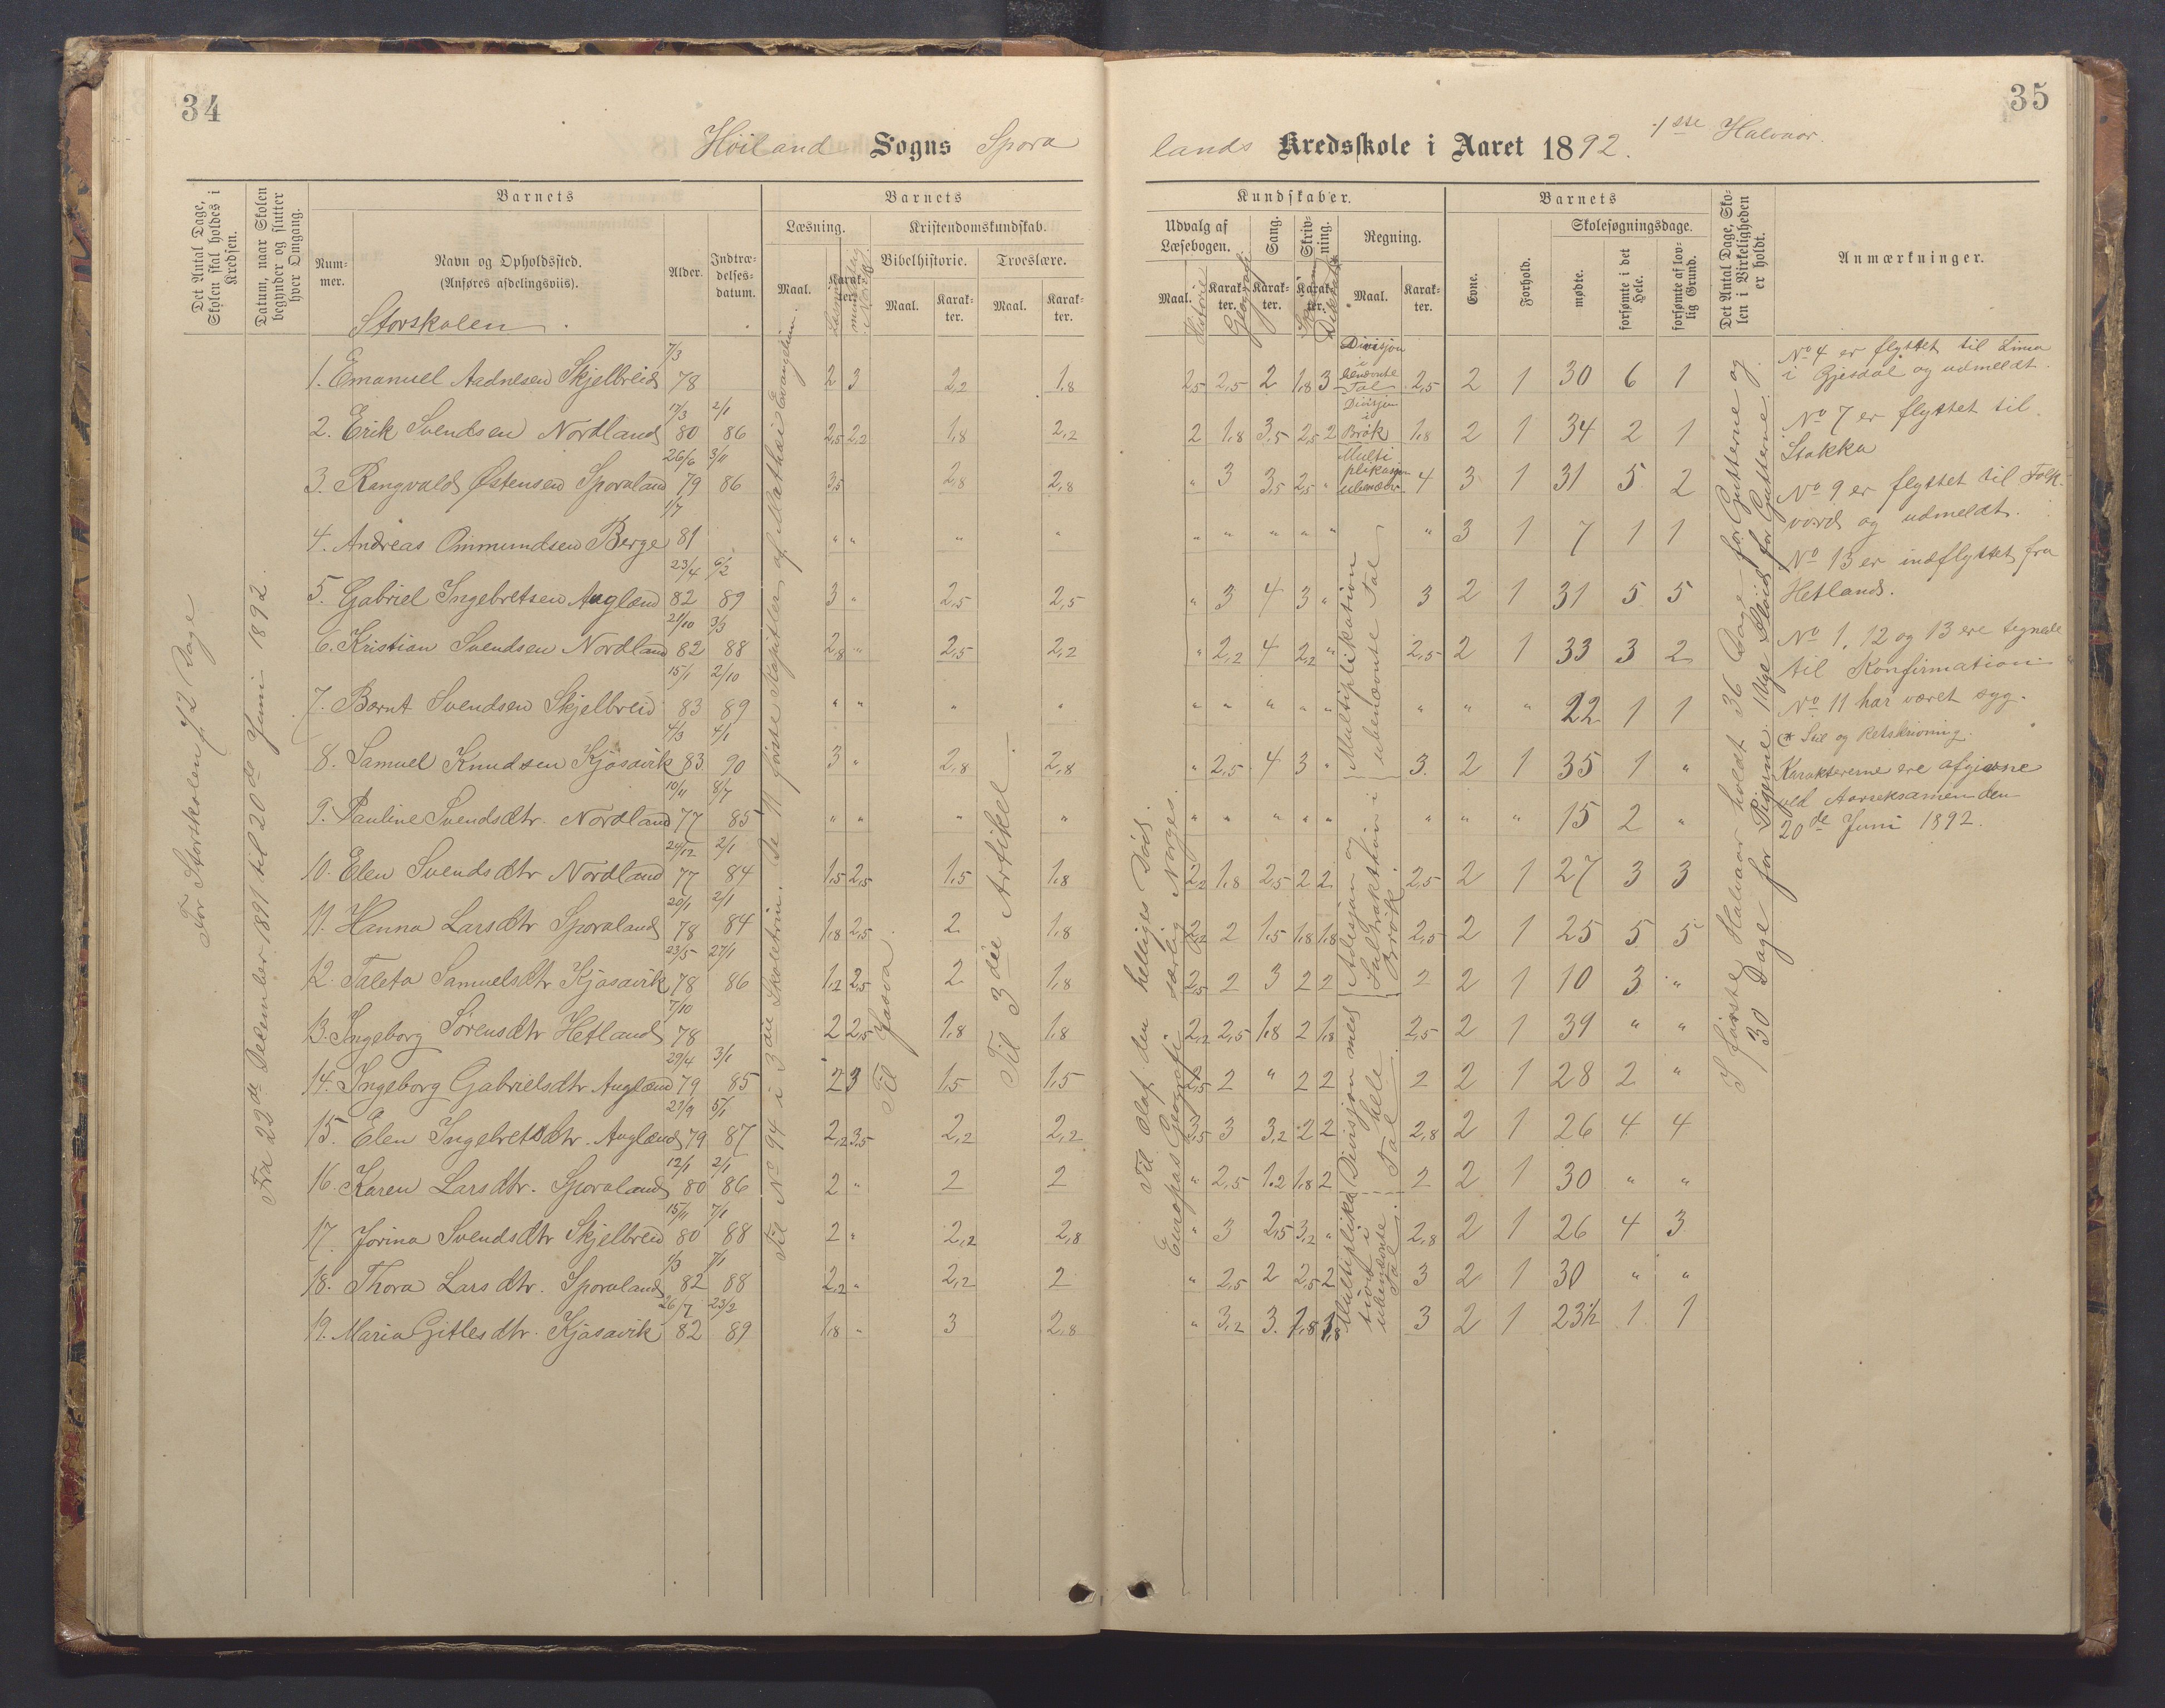 34
Höiland Sogns Spora
Det Antal Dage, Skolen skal holdes i Kredsen.
Datum, naar Skolen begynder og slutter hver Omgang.
Barnets
Num-mer.
Navn og Opholdssted.
(Anføres afdelingsviis).
Alder.
Indtræ-delses-datum.
Barnets
Læsning.
Maal.
Karak-ter.
Kristendomskundskab.
Bibelhistorie.
Maal.
Karak-ter.
Troeslære.
Maal.
Karak-ter.
Storskolen
For Storskolen 72 Dage
Fra 22de December 1891 til 20de Juni 1892.
Til No 94 i 3die Skoletrin. De 11 første Kapitler af Mathæi Evangelium.
Til Josva
Til 3die Artikel
1. Emanuel Aadnesen Skjelbreid 7/3 78 2 3 2,2 1,8
2. Erik Svendsen Nordland 17/3 80 2/1 86 2,5 2,2 1,8 2,2
3. Rangvald Østensen Sporaland 26/6 79 3/11 86 3,5 2,8 2,8
4. Andreas Ommundsen Berge 1/7 81 " " " "
5. Gabriel Ingebretsen Augland 23/4 82 6/2 89 3 " 2,5 2,5
6. Kristian Svendsen Nordland 21/10 82 3/3 88 2,8 " 2,5 2,2
7. Bernt Svendsen Skjelbreid 15/1 83 2/10 89 " " " "
8. Samuel Knudsen Kjosavik 4/3 83 4/1 90 3 " 2,8 2,8
9. Pauline Svendsdtr. Nordland 10/11 77 8/7 85 " " " "
10. Elen Svendsdtr Nordland 24/12 77 2/1 84 1,5 2,5 1,5 1,8
11. Hanna Larsdtr Sporaland 20/1 78 2/1 84 1,8 2,5 2 1,8
12. Taleta Samuelsdtr Kjosavik 23/5 78 27/1 86 1,2 2,5 2 1,8
13. Ingeborg Sörensdtr Hetland 7/10 78 2 2,5 1,8 1,8
14. Ingeborg Gabrielsdtr Augland 29/4 79 3/1 85 2 3 1,5 1,5
15. Elen Ingebretsdtr. Augland 21/9 79 5/1 87 2,2 3,5 2,2 2,2
16. Karen Larsdtr. Sporaland 12/1 80 2/1 86 2 " 2 2
17. Jorina Svendsdtr Skjelbreid 15/11 80 7/1 88 2 " 2,2 2,8
18. Thora Larsdtr. Sporaland 1/3 82 7/1 88 2,2 " 2,2 2
19. Maria Gitlesdtr. Kjosavik 26/7 82 23/2 89 1,8 " 3 2,8
35
lands Kredsskole i Aaret 1892. 1ste Halvaar
Kundskaber.
Udvalg af Læsebogen.
Maal.
Historie
Karak-ter.
Geografi
Sang.
Karak-ter.
Skriv-ning.
Karak-ter.
Regning.
Maal.
Karak-ter.
Barnets
Evne.
Forhold.
Skolesøgningsdage.
mødte.
forsømte i det Hele.
forsømte af lov-lig Grund.
Det Antal Dage, Sko-len i Virkeligheden er holdt.
Anmærkninger.
Til Olaf den helliges Död.
Europas Geografi særlig Norges.
Divisjon i benævnte Tal
Divisjon i Brøk
Multiplikasjon ubenævn
Multiplikation i ubenævnte Tal
Addisjon og Subtraktion i Brök.
Divisjon med hele Tal
Multiplikation i ubenævnte Tal
I förste Halvaar holdt 36 Dage for Gutterne og
30 Dage for Pigerne. 1 Uge Slöid for Gutterne.
2,5 2,5 2 1,8 3 2,5 2 1 30 6 1
2 1,8 3,5 2,5 2 1,8 2 1 34 2 1
" 3 3,5 2,5 " 4 3 1 31 5 2
" " " " " " 3 1 7 1 1
" 3 4 3 " 3 2 1 31 5 5
" 2,2 4 2,2 " 2,5 2 1 33 3 2
" " " " " " " " 22 1 1
" 2,5 4 3 " 3. 2 1 35 1 "
" " " " " " " " 15 2 "
2,2 1,8 2,5 2 2 2,5 2 1 27 3 3
2,2 2 1,5 1,8 1,8 2,5 2 1 25 5 5
2,5 2 3 2 2 2 2 1 10 3 "
2,2 2,5 1,8 2 1,8 2,5 2 1 39 " "
2,5 2 " 2 2 2 2 1 28 2 "
3,5 3 3,2 2 2 2,8 2 1 26 4 4
" 2,5 1,2 1,8 2 2 2 1 30 " "
" 3 2,5 3,2 " 2,8 2 1 26 4 3
" 2,5 2 2,5 2 3 2 1 30 " "
" 3,2 3. 1,8 1,8 3 2 1 23½ 1 1
No 4 er flyttet til Lima
i Gjesdal og udmeldt.
No 7 er flyttet til
Stokka
No 9 er flyttet til Folk-
vord og udmeldt.
No 13 er indflyttet fra
Hetland.
No 1, 12 og 13 ere tegnede
til Konfirmation
No 11 har været syg.
(* Stil og Retskrivning.
Karaktererne ere afgivne
ved Aarseksamen den
20de Juni 1892.